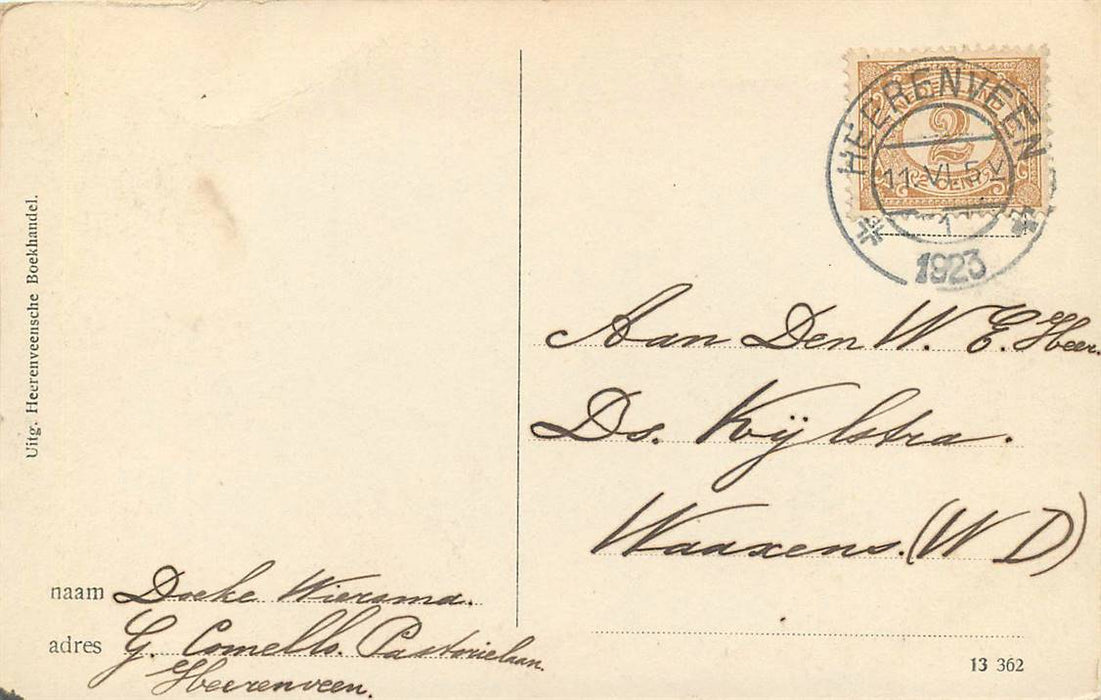 Uitg. Heerenveensche Boekhandel.
NEDERLAND
2
CENT
HEERENVEEN
11.VI.5 V
1
1923
Aan Den W. E. Heer.
Ds. Kijlstra.
Waaxens. (W D)
naam Doeke Wiersma.
adres G. Comello. Pastorielaan
Heerenveen.
13 362